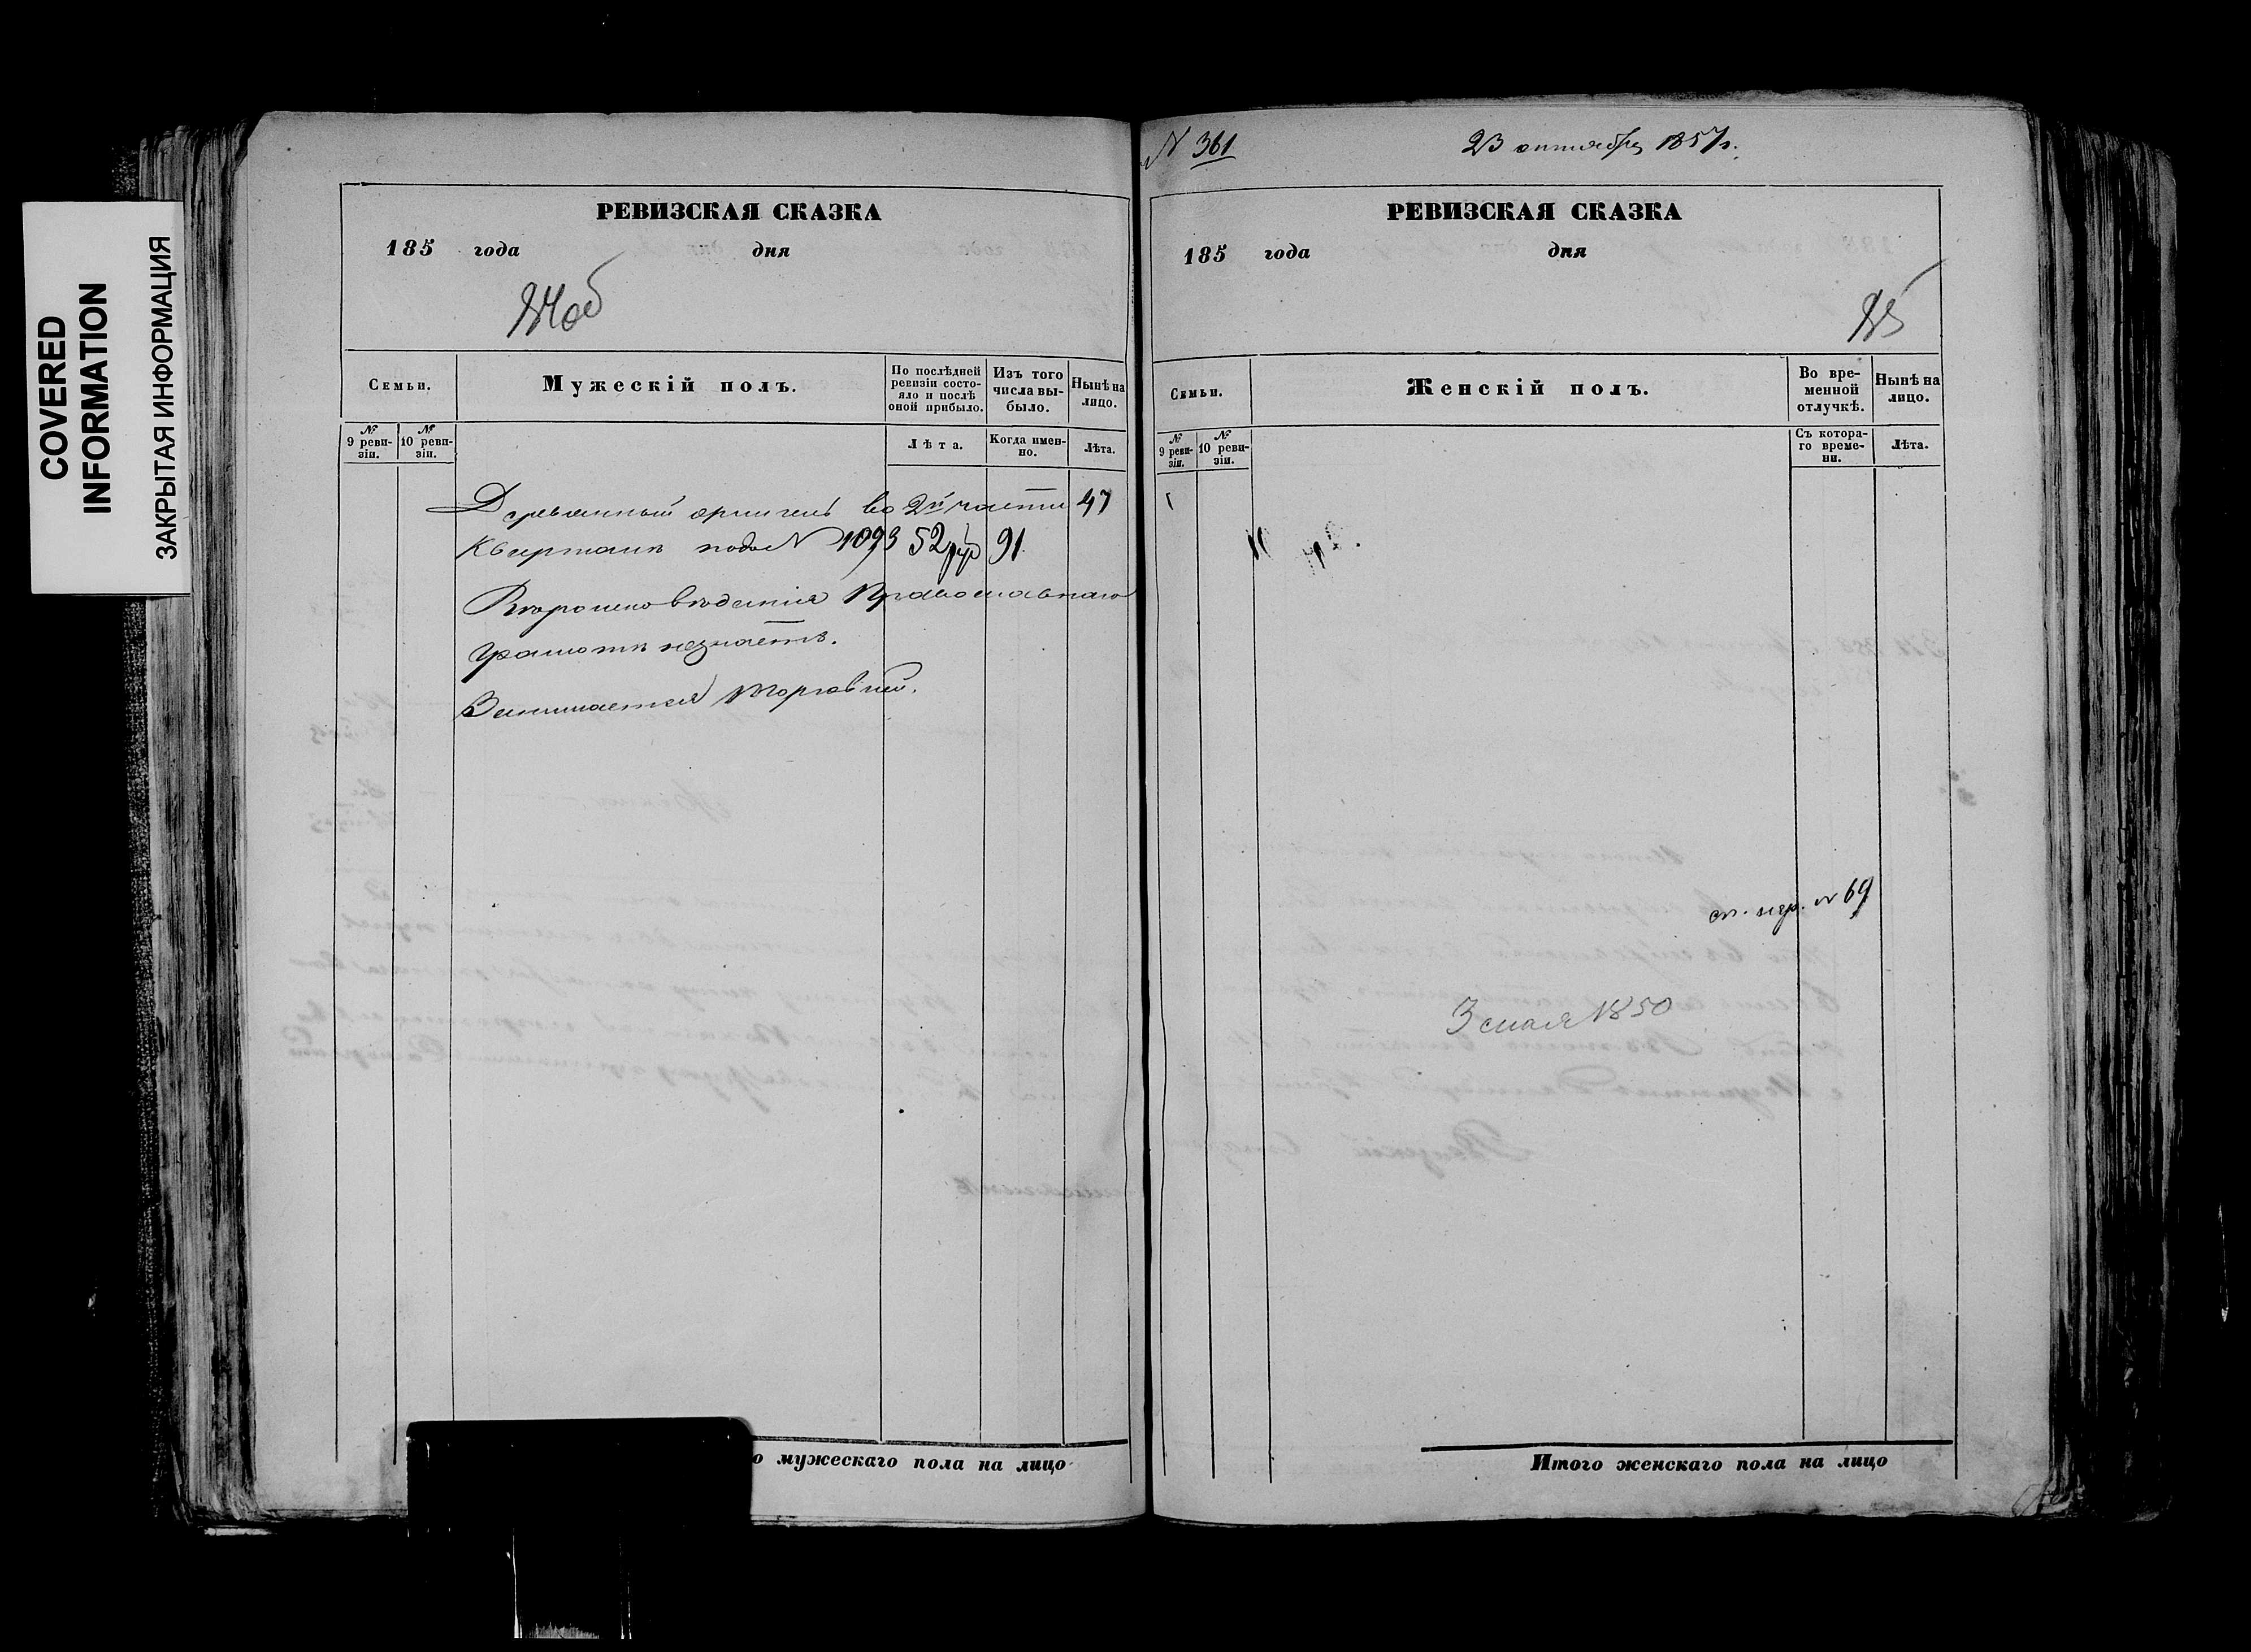 COVERED
INFORMATION
ЗАКРЫТАЯ ИНФОРМАЦИЯ
РЕВИЗСКАЯ СКАЗКА
185 года дня
Семьи.
Мужескій полъ.
По послѣдней ревизіи состояло и послѣ оной прибыло.
Изъ того числа выбыло.
Нынѣ на лицо.
№ 9 ревизіи.
№ 10 ревизіи.
Лѣта.
Когда именно.
Лѣта.
Деревянный во 2й части 47
Квартала подъ N 1093 52 91
Вѣроисповѣданія Православнаго
Грамотѣ незнаетъ.
Занимается торговлей.
о мужескаго пола на лицо
N 361
23 октября 1857 г.
РЕВИЗСКАЯ СКАЗКА
185 года дня
Семьи.
Женскій полъ.
Во временной отлучкѣ.
Нынѣ на лицо.
№ 9 ревизіи.
№ 10 ревизіи.
Съ котораго времени.
Лѣта.
N 69
3 мая 1850
Итого женскаго пола на лицо